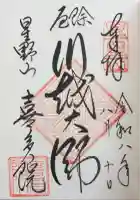 奉拝
令和八年
八月十日
厄除
川越大師
星野山
喜多院